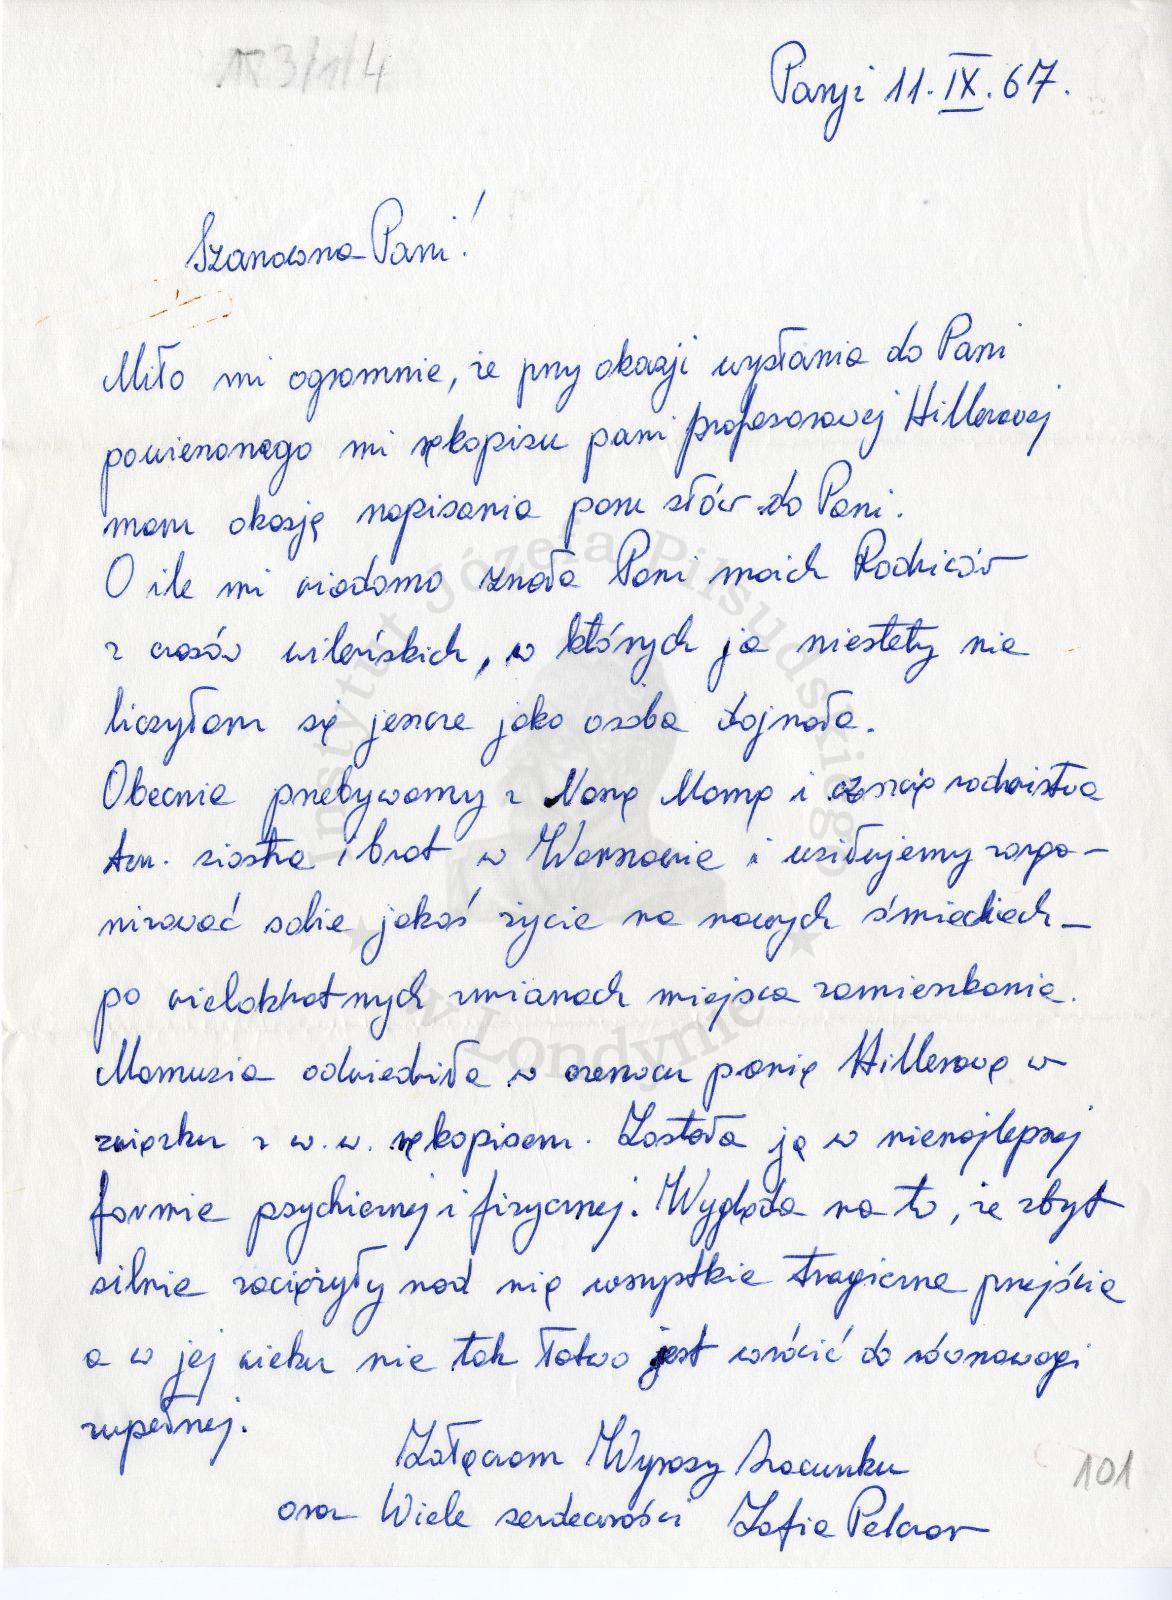 123/1/4
Paryż 11. IX. 67.
Szanowna Pani!
Miło mi ogromnie, że przy okazji wysłania do Pani
powierzonego mi rękopisu pani profesorowej Hillerowej
mam okazję napisania paru słów do Pani.
O ile mi wiadomo znała Pani moich Rodziców
z czasów wileńskich, w których ja niestety nie
liczyłam się jeszcze jako osoba dojrzała.
Obecnie przebywamy z Mamą i częścią rodzeństwa
tzn. siostra i brat w Warszawie i usiłujemy zorga-
nizować sobie jakoś życie na nowych śmieciach -
po wielokrotnych zmianach miejsca zamieszkania.
Mamusia odwiedziła w czerwcu panią Hillerową w
związku z w. w. rękopisem. Zastała ją w nienajlepszej
formie psychicznej i fizycznej. Wygląda na to, że zbyt
silnie zaciężyły nad nią wszystkie tragiczne przejścia
a w jej wieku nie tak łatwo jest wrócić do równowagi
zupełnej.
Załączam Wyrazy Szacunku
oraz Wiele serdeczności Zofia Pelczar
101
Instytut Józefa Piłsudskiego
w Londynie